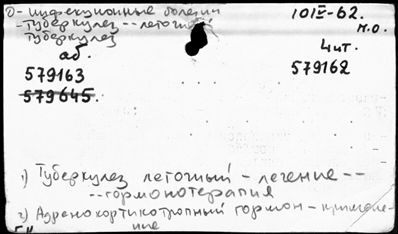 D - инфекционные болезни
- Туберкулез -- легочный
Туберкулез
аб.
579163
579645.
10IV-62.
М.О.
Чит.
579162
1) Туберкулез легочный - лечение --
-- гормонотерапия
2) Адренокортикотропный гормон - применение